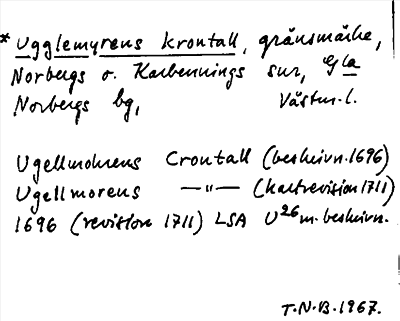 * Ugglemyrens krontall, gränsmärke,
Norbergs o. Karbennings snr, Gla
Norbergs bg, Västm. l.
Ugellmohrens Crontall (beskrivn. 1696)
Ugellmorens —"— (kartrevision 1711)
1696 (revision 1711) LSA U26 m. beskrivn.
T.N.B. 1967.